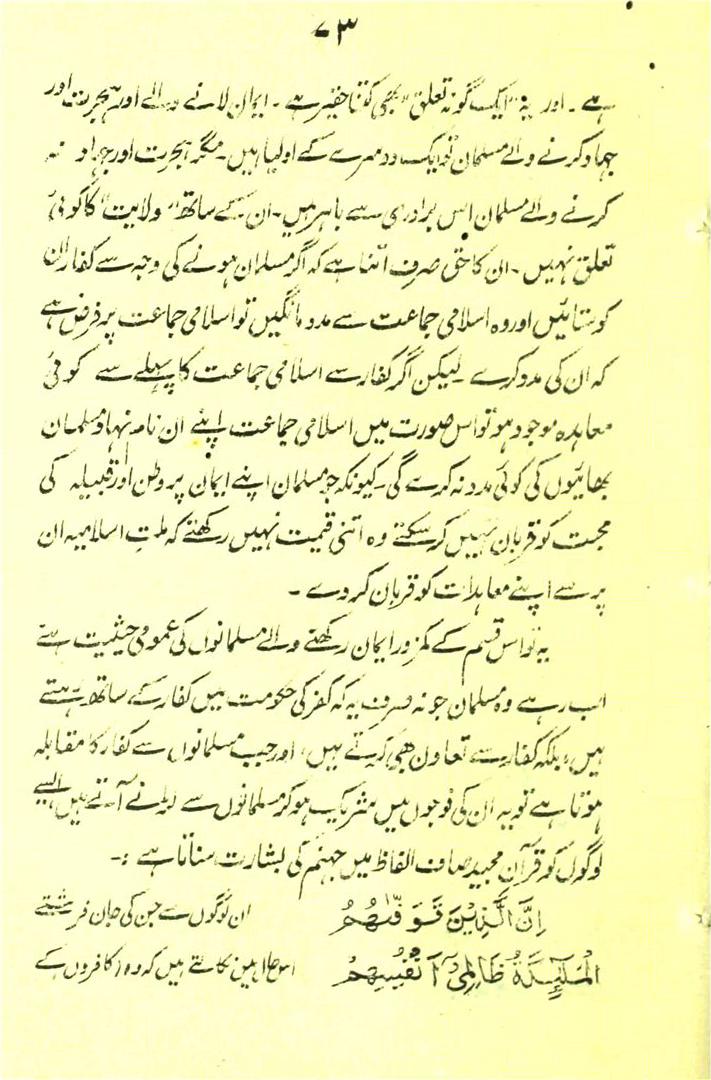 ۷۳
ہے۔ اور یہ "ایک گونہ تعلق" بھی کتنا حقیر ہے۔ ایمان لانے والے اور ہجرت اور
جہاد کرنے والے مسلمان تو ایک دوسرے کے اولیا ہیں۔ مگر ہجرت اور جہاد نہ
کرنے والے مسلمان اس برادری سے باہر ہیں۔ ان کے ساتھ "ولایت" کا کوئی
تعلق نہیں۔ ان کا حق صرف اتنا ہے کہ اگر مسلمان ہونے کی وجہ سے کفار ان
کو ستائیں اور وہ اسلامی جماعت سے مدد مانگیں تو اسلامی جماعت پر فرض ہے
کہ ان کی مدد کرے۔ لیکن اگر کفار سے اسلامی جماعت کا پہلے سے کوئی
معاہدہ موجود ہو تو اس صورت میں اسلامی جماعت اپنے ان نام نہاد مسلمان
بھائیوں کی کوئی مدد نہ کرے گی۔ کیونکہ جو مسلمان اپنے ایمان پر وطن اور قبیلہ کی
محبت کو قربان نہیں کر سکتے وہ اتنی قیمت نہیں رکھتے کہ ملت اسلامیہ ان
پر سے اپنے معاہدات کو قربان کر دے۔
یہ تو اس قسم کے کمزور ایمان رکھنے والے مسلمانوں کی عمومی حیثیت ہے
اب رہے وہ مسلمان جو نہ صرف یہ کہ کفر کی حکومت میں کفار کے ساتھ رہتے
ہیں، بلکہ کفار سے تعاون بھی کرتے ہیں، اور جب مسلمانوں سے کفار کا مقابلہ
ہوتا ہے تو یہ ان کی فوجوں میں شریک ہو کر مسلمانوں سے لڑنے آتے ہیں، ایسے
لوگوں کو قرآن مجید صاف الفاظ میں جہنم کی بشارت سناتا ہے :۔
اِنَّ الَّذِیْنَ تَوَفّٰىهُمُ ان لوگوں سے جن کی جان فرشتے
الْمَلٰٓئِكَةُ ظَالِمِیْۤ اَنْفُسِهِمْ اس حال میں نکالتے ہیں کہ وہ (کافروں کے